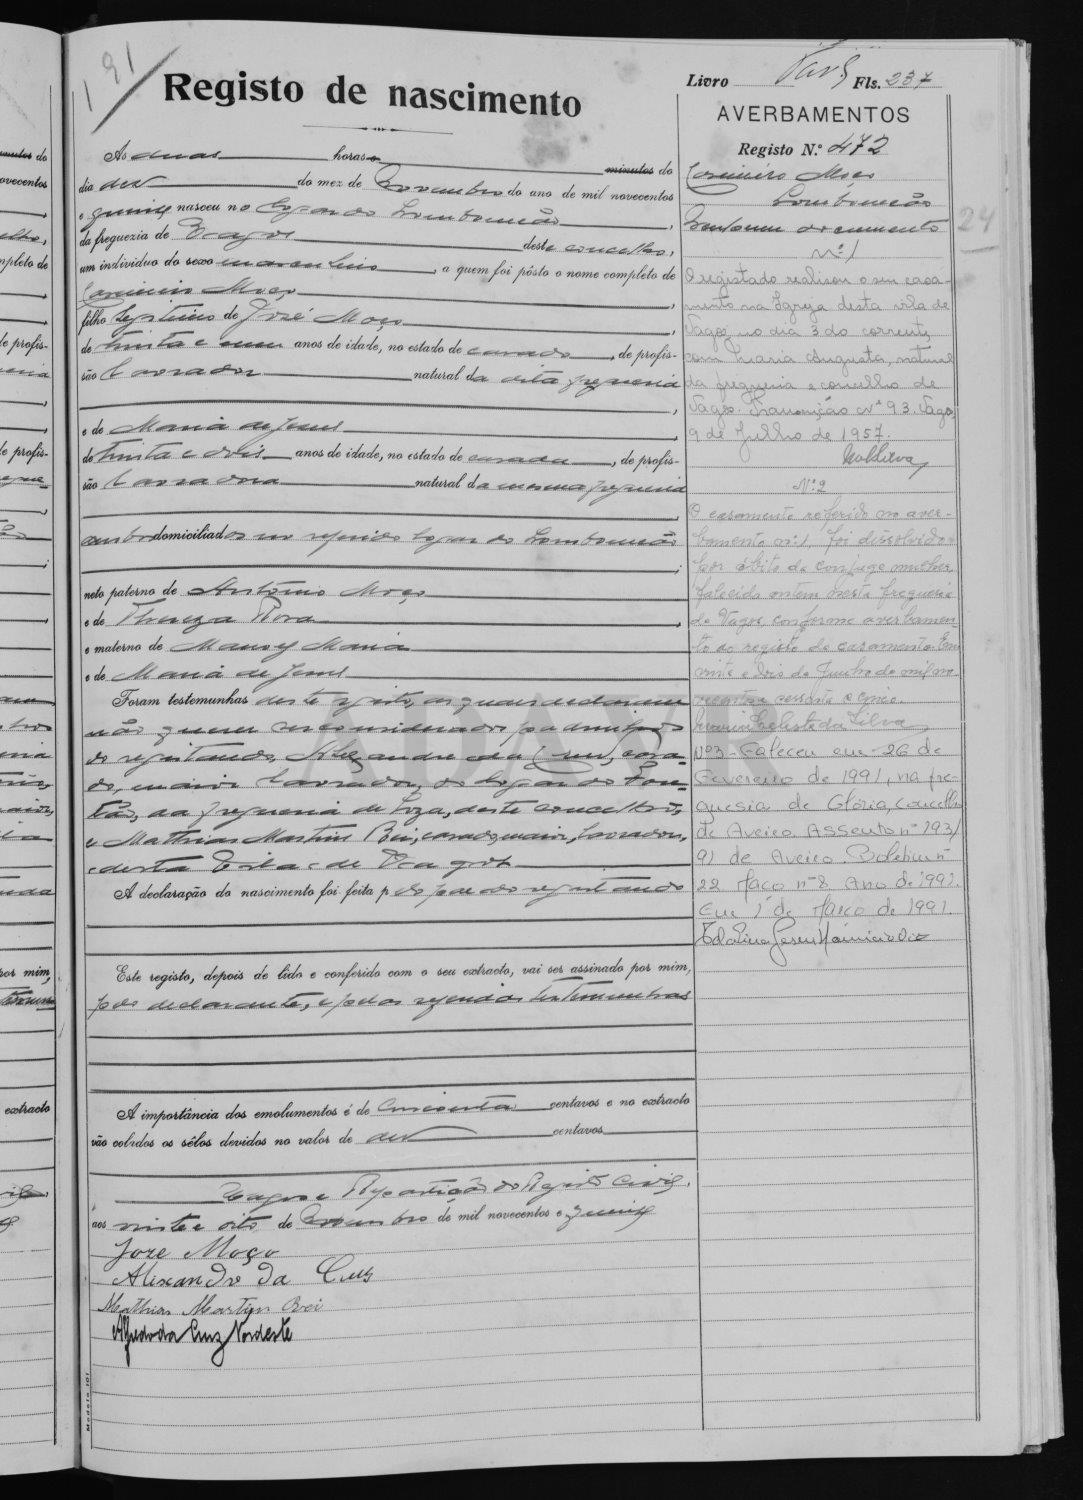 191
Registo de nascimento
As duas horas e minutos do
dia dez do mez de Novembro do ano de mil novecentos
e quinze nasceu no logar do Lombomeão,
da freguezia de Vagos deste concelho,
um individuo do sexo masculino, a quem foi pôsto o nome completo de
Casimiro Moço,
filho legitimo de José Moço,
de trinta e um anos de idade, no estado de casado, de profis-
são lavrador natural da dita freguesia
,
e de Maria de Jesus,
de trinta e dois anos de idade, no estado de casada, de profis-
são lavradora natural da mesma freguesia
,
ambos domiciliados no referido logar do Lombomeão
;
neto paterno de António Moço
e de Thereza Rosa,
e materno de Manoel Maria
e de Maria de Jesus
Foram testemunhas deste registo, as quaes declararam
não querer ser consideradas padrinhos
do registando, Alexandre da Cruz, casa-
do, maior, lavrador, do logar do
da freguesia de Soza, deste concelho,
e Mathias Martins Rei, casado, maior, lavrador,
desta Vila de Vagos
A declaração do nascimento foi feita p elo pae do registando
Este registo, depois de lido e conferido com o seu extracto, vai ser assinado por mim,
pelo declarante, e pelas referidas testemunhas
A importância dos emolumentos é de cincoenta centavos e no extracto
vão colados os sêlos devidos no valor de dez centavos
Vagos e Repartição do Registo Civil,
aos vinte e oito de Novembro de mil novecentos e quinze
José Moço
Alexandre da Cruz
Mathias Martins Rei
Alfredo da Cruz Nordeste
Modelo 101
Livro Fls. 237
AVERBAMENTOS
Registo N.º 472
Casimiro Moço
Lombomeão
documento
Nº 1
O registado realisou o seu casa-
mento na Igreja desta vila de
Vagos, no dia 3 do corrente,
com Maria Augusta, natural
da freguesia e concelho de
Vagos. Transcrição nº 93. Vagos,
9 de Julho de 1957.
Nº 2
O casamento referido no aver-
bamento nº 1, foi dissolvido
por óbito da conjuge mulher,
falecida ontem nesta freguesia
de Vagos, conforme averbamen-
to ao registo de casamento. Em
vinte e dois de Junho de mil no-
vecentos e sessenta e cinco.
Celeste da Silva
Nº3 - Faleceu em 26 de
Fevereiro de 1991, na fre-
guesia de Glória, concelho
de Aveiro. Assento nº 193/
91 de Aveiro. Boletim nº
22 Maço nº 8 Ano de 1991.
Em 1 de Março de 1991.
24
extracto